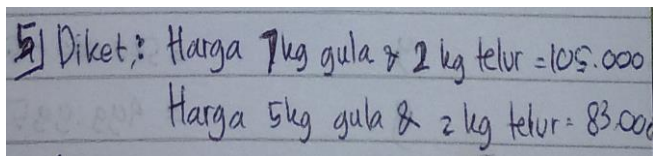 5] Diket : Harga 7kg gula & 2 kg telur = 105.000
Harga 5kg gula & 2 kg telur = 83.000